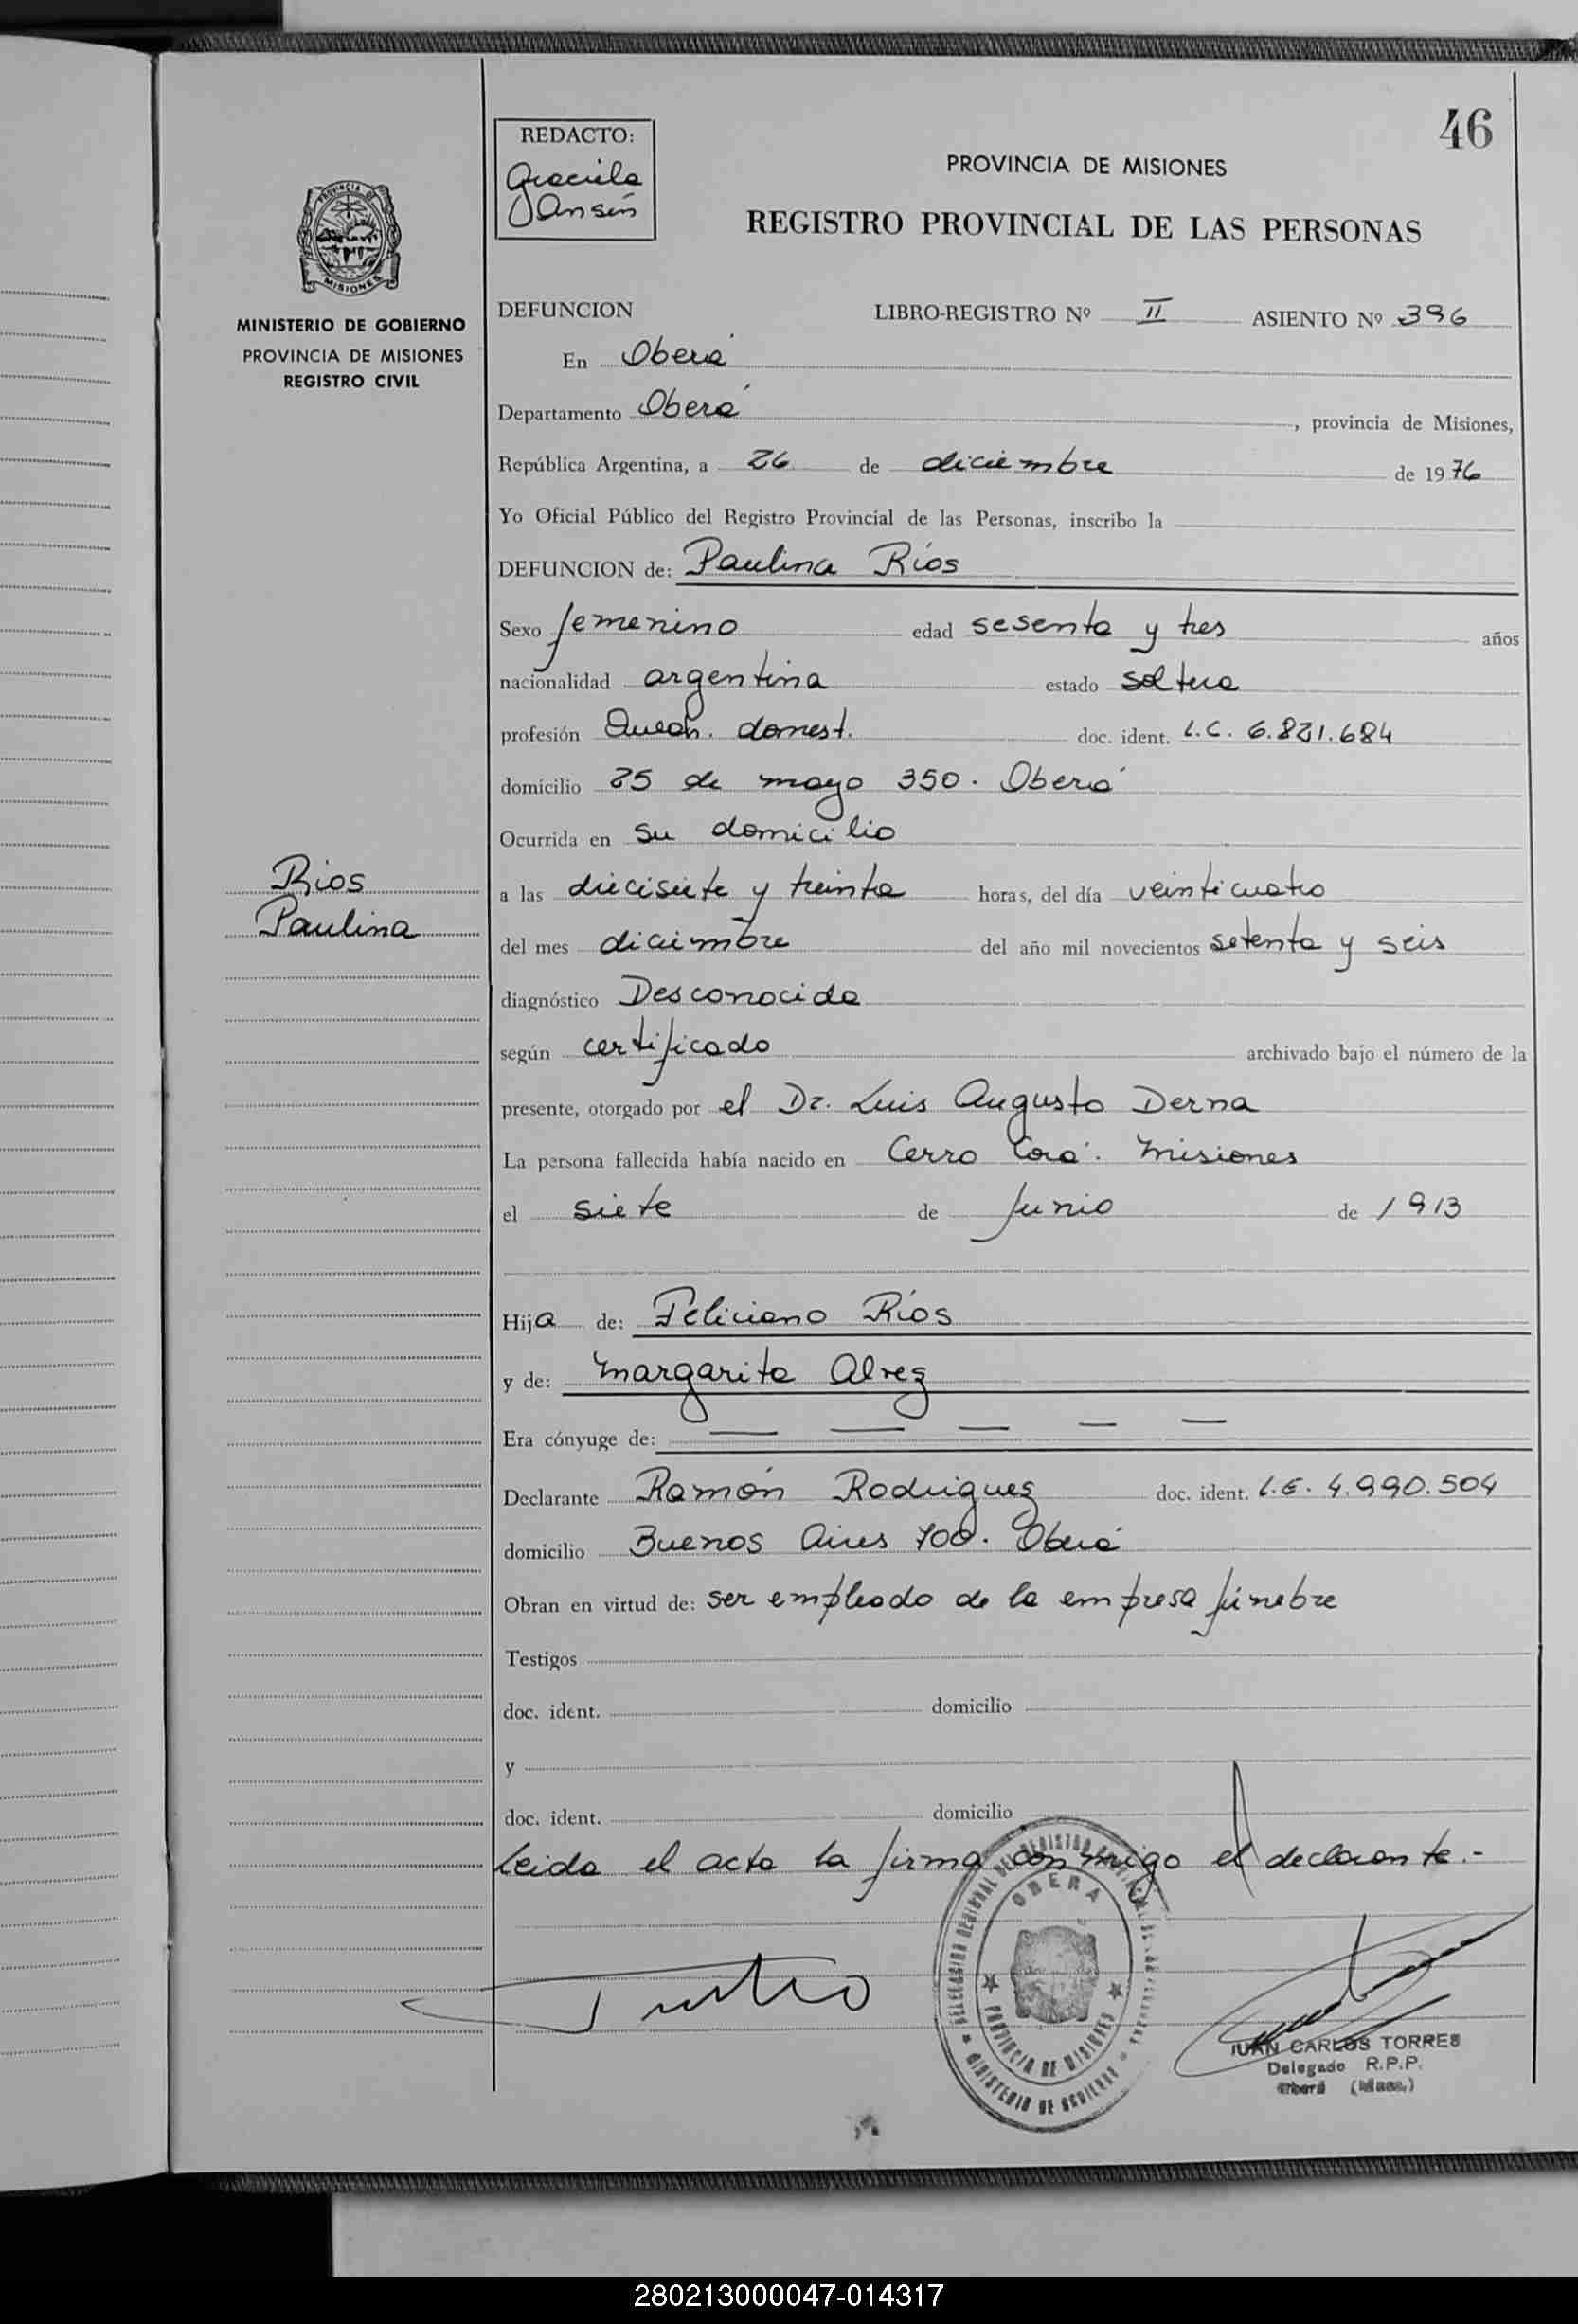 46
REDACTO:
Graciela
Jansen
PROVINCIA DE MISIONES
REGISTRO PROVINCIAL DE LAS PERSONAS
PROVINCIA DE
MISIONES
MINISTERIO DE GOBIERNO
PROVINCIA DE MISIONES
REGISTRO CIVIL
DEFUNCION LIBRO-REGISTRO Nº II ASIENTO Nº 396
En Oberá
Departamento Oberá, provincia de Misiones,
República Argentina, a 26 de diciembre de 1976
Yo Oficial Público del Registro Provincial de las Personas, inscribo la
DEFUNCION de: Paulina Ríos
Sexo femenino edad sesenta y tres años
nacionalidad argentina estado soltera
profesión Queah. domest. doc. ident. L.C. 6.821.684
domicilio 25 de mayo 350. Oberá
Ocurrida en su domicilio
Rios
Paulina
a las diecisiete y treinta horas, del día veinticuatro
del mes diciembre del año mil novecientos setenta y seis
diagnóstico Desconocida
según certificado archivado bajo el número de la
presente, otorgado por el Dr. Luis Augusto Derna
La persona fallecida había nacido en Cerro Corá. Misiones
el siete de Junio de 1913
Hija de: Feliciano Ríos
y de: Margarita Alvez
Era cónyuge de: — — — — —
Declarante Ramón Rodriguez doc. ident. L.E. 4.990.504
domicilio Buenos Aires 700. Oberá
Obran en virtud de: ser empleado de la empresa fúnebre
Testigos
doc. ident. domicilio
y
doc. ident. domicilio
Leida el acta la firma conmigo el declarante.-
OBERA
PROVINCIA DE MISIONES
MINISTERIO DE GOBIERNO
JUAN CARLOS TORRES
Delegado R.P.P.
Oberá (Mnes.)
280213000047-014317